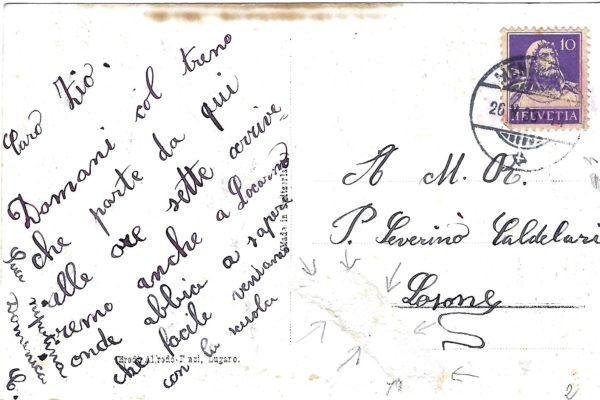 Caro Zio.
Domani col treno
che parte da qui
alle ore sette arrive
remo anche a Locarno
onde abbia a saper
che facile veniamo
con la scuola
Sua nipotina
Domenica C.
A M. R.
P. Severino Caldelari
Losone
10
HELVETIA
26
in Switzerland
Lugano.
2